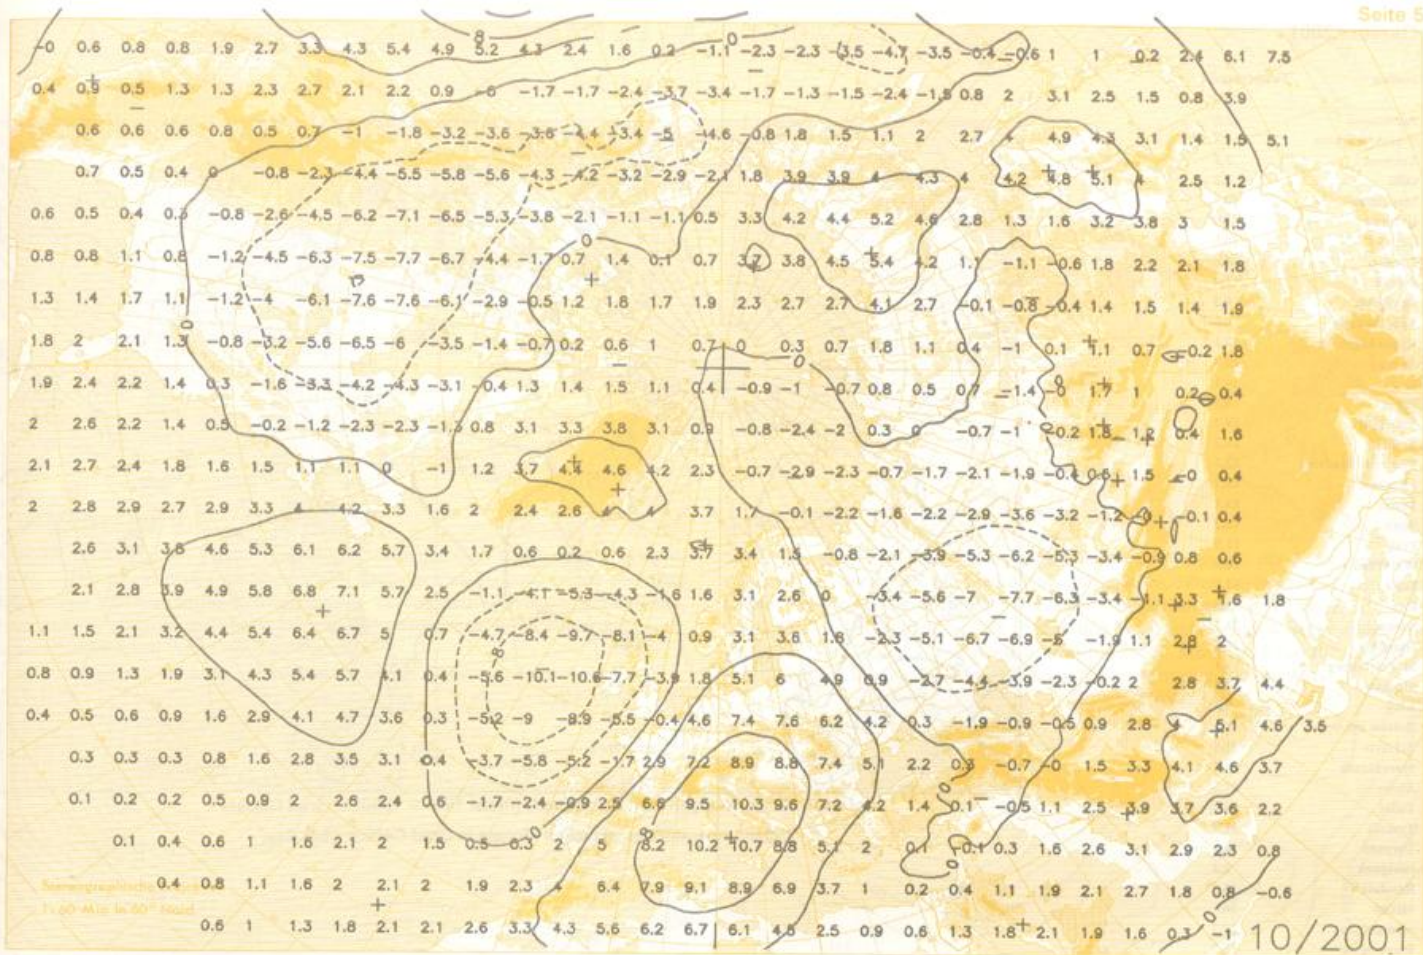 Seite 5
-0 0.6 0.8 0.8 1.9 2.7 3.3 4.3 5.4 4.9 5.2 4.3 2.4 1.6 0.2 -1.1 -2.3 -2.3 -3.5 -4.7 -3.5 -0.4 -0.6 1 1 0.2 2.4 6.1 7.5
0.4 0.9 0.5 1.3 1.3 2.3 2.7 2.1 2.2 0.9 -1.7 -1.7 -2.4 -3.7 -3.4 -1.7 -1.3 -1.5 -2.4 -1.5 0.8 2 3.1 2.5 1.5 0.8 3.9
0.6 0.6 0.6 0.8 0.5 0.7 -1 -1.8 -3.2 -3.6 -3.8 -4.4 -3.4 -5 -4.6 -0.8 1.8 1.5 1.1 2 2.7 4 4.9 4.3 3.1 1.4 1.5 5.1
0.7 0.5 0.4 0 -0.8 -2.3 -4.4 -5.5 -5.8 -5.6 -4.3 -4.2 -3.2 -2.9 -2.1 1.8 3.9 3.9 4 4.3 4 4.2 4.8 5.1 4 2.5 1.2
0.6 0.5 0.4 0.3 -0.8 -2.6 -4.5 -6.2 -7.1 -6.5 -5.3 -3.8 -2.1 -1.1 -1.1 0.5 3.3 4.2 4.4 5.2 4.6 2.8 1.3 1.6 3.2 3.8 3 1.5
0.8 0.8 1.1 0.8 -1.2 -4.5 -6.3 -7.5 -7.7 -6.7 -4.4 -1.7 0.7 1.4 0.1 0.7 3.7 3.8 4.5 5.4 4.2 1.1 -1.1 -0.6 1.8 2.2 2.1 1.8
1.3 1.4 1.7 1.1 -1.2 -4 -6.1 -7.6 -7.6 -6.1 -2.9 -0.5 1.2 1.8 1.7 1.9 2.3 2.7 2.7 4.1 2.7 -0.1 -0.8 -0.4 1.4 1.5 1.4 1.9
1.8 2 2.1 1.3 -0.8 -3.2 -5.6 -6.5 -6 -3.5 -1.4 -0.7 0.2 0.6 1 0.7 0 0.3 0.7 1.8 1.1 0.4 -1 0.1 1.1 0.7 -0.2 1.8
1.9 2.4 2.2 1.4 0.3 -1.6 -3.3 -4.2 -4.3 -3.1 -0.4 1.3 1.4 1.5 1.1 0.4 -0.9 -1 -0.7 0.8 0.5 0.7 -1.4 -0 1.7 1 0.2 0.4
2 2.6 2.2 1.4 0.5 -0.2 -1.2 -2.3 -2.3 -1.3 0.8 3.1 3.3 3.8 3.1 0.9 -0.8 -2.4 -2 0.3 0 -0.7 -1 -0.2 1.8 1.2 0.4 1.6
2.1 2.7 2.4 1.8 1.6 1.5 1.1 1.1 0 -1 1.2 3.7 4.4 4.6 4.2 2.3 -0.7 -2.9 -2.3 -0.7 -1.7 -2.1 -1.9 -0.4 0.6 1.5 -0 0.4
2 2.8 2.9 2.7 2.9 3.3 4 4.2 3.3 1.6 2 2.4 2.6 4 4 3.7 1.7 -0.1 -2.2 -1.6 -2.2 -2.9 -3.6 -3.2 -1.2 -0 -0.1 0.4
2.6 3.1 3.8 4.6 5.3 6.1 6.2 5.7 3.4 1.7 0.6 0.2 0.6 2.3 3.7 3.4 1.5 -0.8 -2.1 -3.9 -5.3 -6.2 -5.3 -3.4 -0.9 0.8 0.6
2.1 2.8 3.9 4.9 5.8 6.8 7.1 5.7 2.5 -1.1 -4.1 -5.3 -4.3 -1.6 1.6 3.1 2.6 0 -3.4 -5.6 -7 -7.7 -6.3 -3.4 -1.1 3.3 1.6 1.8
1.1 1.5 2.1 3.2 4.4 5.4 6.4 6.7 5 0.7 -4.7 -8.4 -9.7 -8.1 -4 0.9 3.1 3.6 1.8 -2.3 -5.1 -6.7 -6.9 -5 -1.9 1.1 2.8 2
0.8 0.9 1.3 1.9 3.1 4.3 5.4 5.7 4.1 0.4 -5.6 -10.1 -10.6 -7.7 -3.9 1.8 5.1 6 4.9 0.9 -2.7 -4.4 -3.9 -2.3 -0.2 2 2.8 3.7 4.4
0.4 0.5 0.6 0.9 1.6 2.9 4.1 4.7 3.6 0.3 -5.2 -9 -8.9 -5.5 -0.4 4.6 7.4 7.6 6.2 4.2 0.3 -1.9 -0.9 -0.5 0.9 2.8 4 5.1 4.6 3.5
0.3 0.3 0.3 0.8 1.6 2.8 3.5 3.1 0.4 -3.7 -5.8 -5.2 -1.7 2.9 7.2 8.9 8.8 7.4 5.1 2.2 0.3 -0.7 -0 1.5 3.3 4.1 4.6 3.7
0.1 0.2 0.2 0.5 0.9 2 2.6 2.4 0.6 -1.7 -2.4 -0.9 2.5 6.6 9.5 10.3 9.6 7.2 4.2 1.4 0.1 -0.5 1.1 2.5 3.9 3.7 3.6 2.2
0.1 0.4 0.6 1 1.6 2.1 2 1.5 0.5 0.3 2 5 8.2 10.2 10.7 8.8 5.1 2 0.1 -0.1 0.3 1.6 2.6 3.1 2.9 2.3 0.8
0.4 0.8 1.1 1.6 2 2.1 2 1.9 2.3 4 6.4 7.9 9.1 8.9 6.9 3.7 1 0.2 0.4 1.1 1.9 2.1 2.7 1.8 0.8 -0.6
0.6 1 1.3 1.8 2.1 2.1 2.6 3.3 4.3 5.6 6.2 6.7 6.1 4.5 2.5 0.9 0.6 1.3 1.8 2.1 1.9 1.6 0.3 -1
10/2001